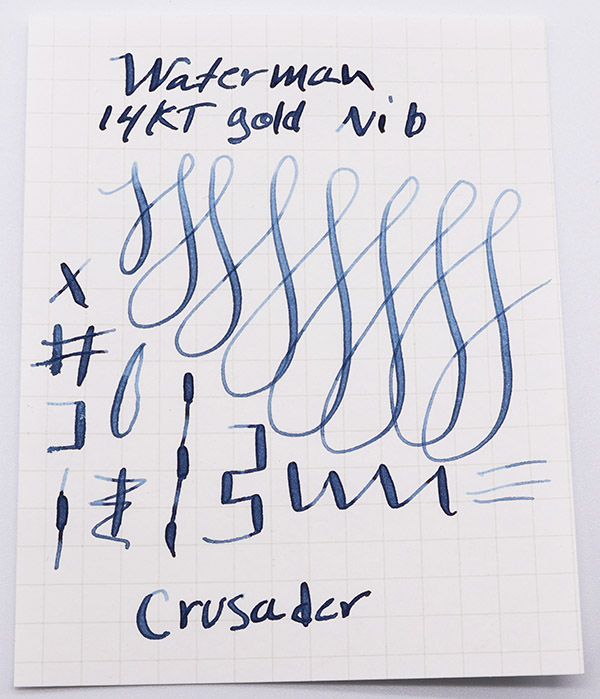 Waterman
14KT gold Nib
x
#
Crusader